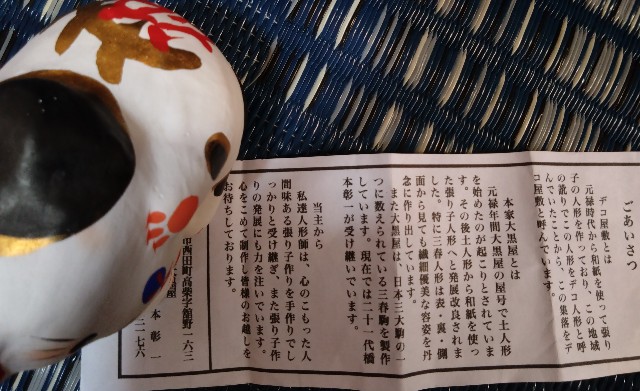 ごあいさつ
デコ屋敷とは
元禄時代から和紙を使って張り
子の人形を作っており、この地域
の訛りでこの人形をデコ人形と呼
んでいたことから、この集落をデ
コ屋敷と呼んでいます。
本家大黒屋とは
元禄年間大黒屋の屋号で土人形
を始めたのが起こりとされていま
す。その後土人形から和紙を使っ
た張り子人形へと発展改良されま
した。特に三春人形は表・裏・側
面から見ても繊細優美な容姿を丹
念に作り出しています。
また大黒屋は、日本三大駒の一
つに数えられている三春駒を製作
しています。現在では二十一代橋
本彰一が受け継いでいます。
当主から
私達人形師は、心のこもった人
間味ある張り子作りを手作りでし
っかりと受け継ぎ、また張り子作
りの発展にも力を注いでいます。
心をこめて制作し皆様のお越しを
お待ちしております。
市西田町高柴字舘野一六三
屋
本彰一
二七六